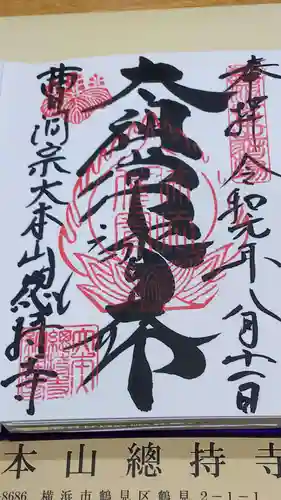 奉拝 令和元年八月十一日
太祖常濟大師
曹洞宗大本山總持寺
本山總持寺
-8686 横浜市鶴見区鶴見2-1-1